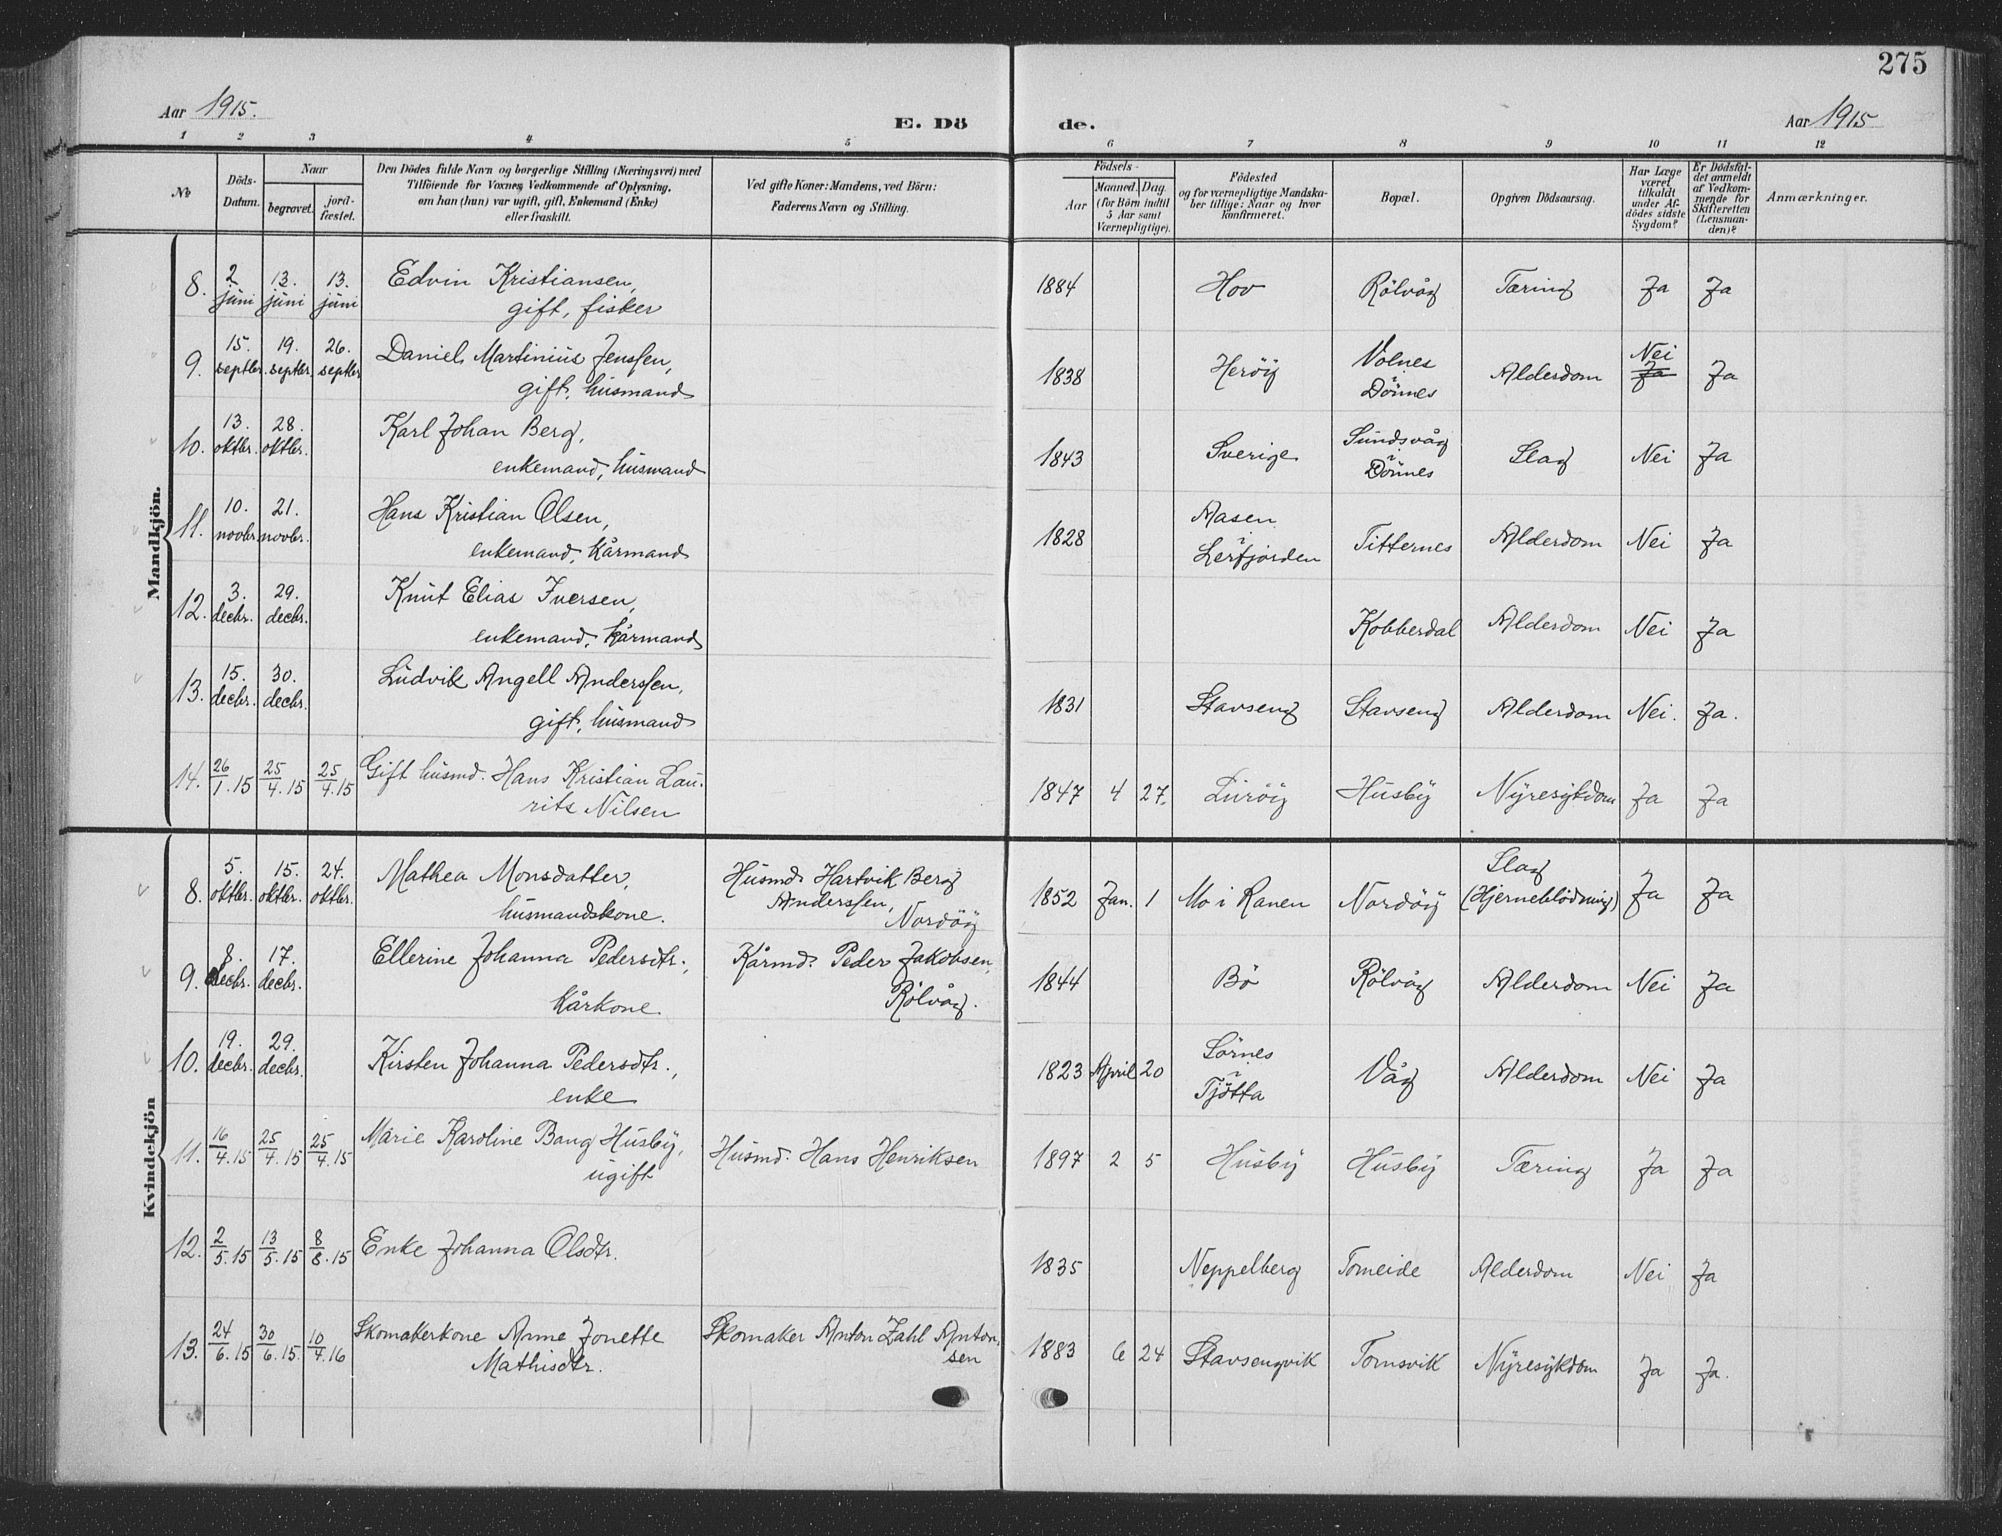 275
Aar 1915.
E. Dö
de.
Aar 1915
1 2 3 4 5 6 7 8 9 10 11 12
No
Döds-
Datum.
Naar
begravet.
jord-
fæstet.
Den Dödes fulde Navn og borgerlige Stilling (Næringsvei) med
Tilföiende for Voxnes Vedkommende af Oplysning,
om han (hun) var ugift, gift, Enkemand (Enke)
eller fraskilt.
Ved gifte Koner: Mandens, ved Börn:
Faderens Navn og Stilling.
Födsels-
Aar
Maaned. Dag.
(for Börn indtil
5 Aar samt
Værnepligtige).
Födested
og for værnepligtige Mandska-
ber tillige: Naar og hvor
konfirmeret.
Bopæl.
Opgiven Dödsaarsag.
Har Læge
været
tilkaldt
under Af-
dödes sidste
Sygdom?
Er Dödsfal-
det anmeldt
af Vedkom-
mende for
Skifteretten
(Lensman-
den)?
Anmærkninger.
Mandkjön.
8. 2 juni 13. juni 13. juni Edvin Kristiansen, 1884 Hov Rölvåg Tæring Ja Ja
gift, fisker
9. 15. septbr. 19. septbr. 26. septbr. Daniel Martinius Jenssen, 1838 Heröy Volnes i Dönnes Alderdom Nei Ja Ja
gift, husmand
10. 13. oktbr. 28. oktbr. Karl Johan Berg, 1843 Sverige Sundsvåg i Dönnes Slag Nei Ja
enkemand, husmand
11. 10. novbr. 21. novbr. Hans Kristian Olsen, 1828 Aasen i Leirfjorden Titternes Alderdom Nei Ja
enkemand, kårmand
12. 3. decbr. 29. decbr. Knut Elias Iversen, Kobberdal Alderdom Nei Ja
enkemand, kårmand
13. 15. decbr. 30. decbr. Ludvik Angell Anderssen, 1831 Stavseng Stavseng Alderdom Nei. Ja.
gift, husmand
14. 26/1.15 25/4.15 25/4.15 Gift husmd. Hans Kristian Lau- 1847 4 27. Luröy Husby Nyresykdom Ja Ja
rits Nilsen
Kvindekjön
8. 5. oktbr. 15. oktbr. 24. oktbr. Mathea Monsdatter, Husmd. Hartvik Berg 1852 Jan. 1 Mo i Ranen Nordöy Slag (Hjerneblödning) Ja Ja
husmandskone. Anderssen, Nordöy
9. 8. decbr. 17. decbr. Ellerine Johanna Pedersdtr., Kårmd. Peder Jakobsen, 1844 Bö Rölvåg Alderdom Nei Ja
Kårkone. Rölvåg.
10. 19. decbr. 29. decbr. Kirsten Johanna Pedersdtr., 1823 April 20 Sörnes i Tjötta Våg Alderdom Nei Ja
enke
11. 16/4.15 25/4.15 25/4.15 Marie Karoline Bang Husby, Husmd. Hans Henriksen 1897 2 5 Husby Husby Tæring Ja Ja
ugift
12. 2/5.15 13/5.15 8/8.15 Enke Johanna Olsdtr. 1835 Neppelberg Tomeide Alderdom Nei Ja
13. 24/6.15 30/6.15. 10/4.16 Skomakerkone Anne Jonette Skomaker Anton Zahl Anton- 1883 6 24 Stavsengvik Tomsvik Nyresykdom Ja Ja.
Mathisdtr. sen